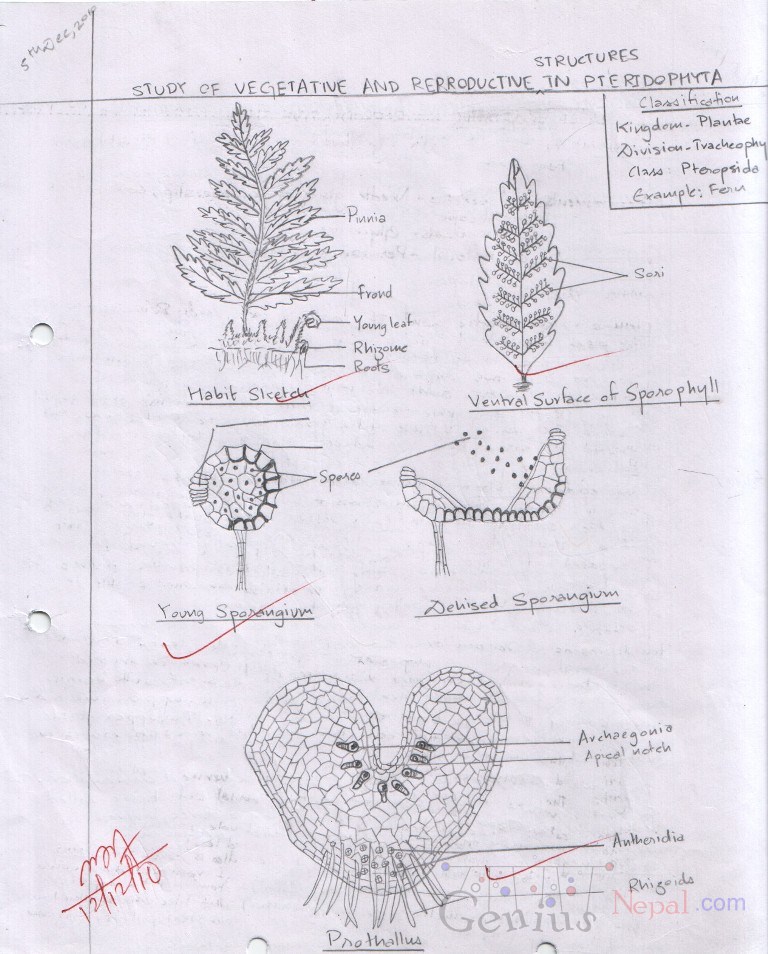 5th Dec, 2010
STRUCTURES
STUDY OF VEGETATIVE AND REPRODUCTIVE IN PTERIDOPHYTA
Classification
Kingdom- Plantae
Division-Tracheophy
Class: Pteropsida
Example: Fern
Pinnia
frond
Young leaf
Rhizome
Roots
Habit Sketch
Sori
Ventral Surface of Sporophyll
Spores
Young Sporangium
Dehised Sporangium
Archaegonia
Apical notch
Antheridia
Rhizoids
Prothallus
12/12/10
Genius Nepal.com